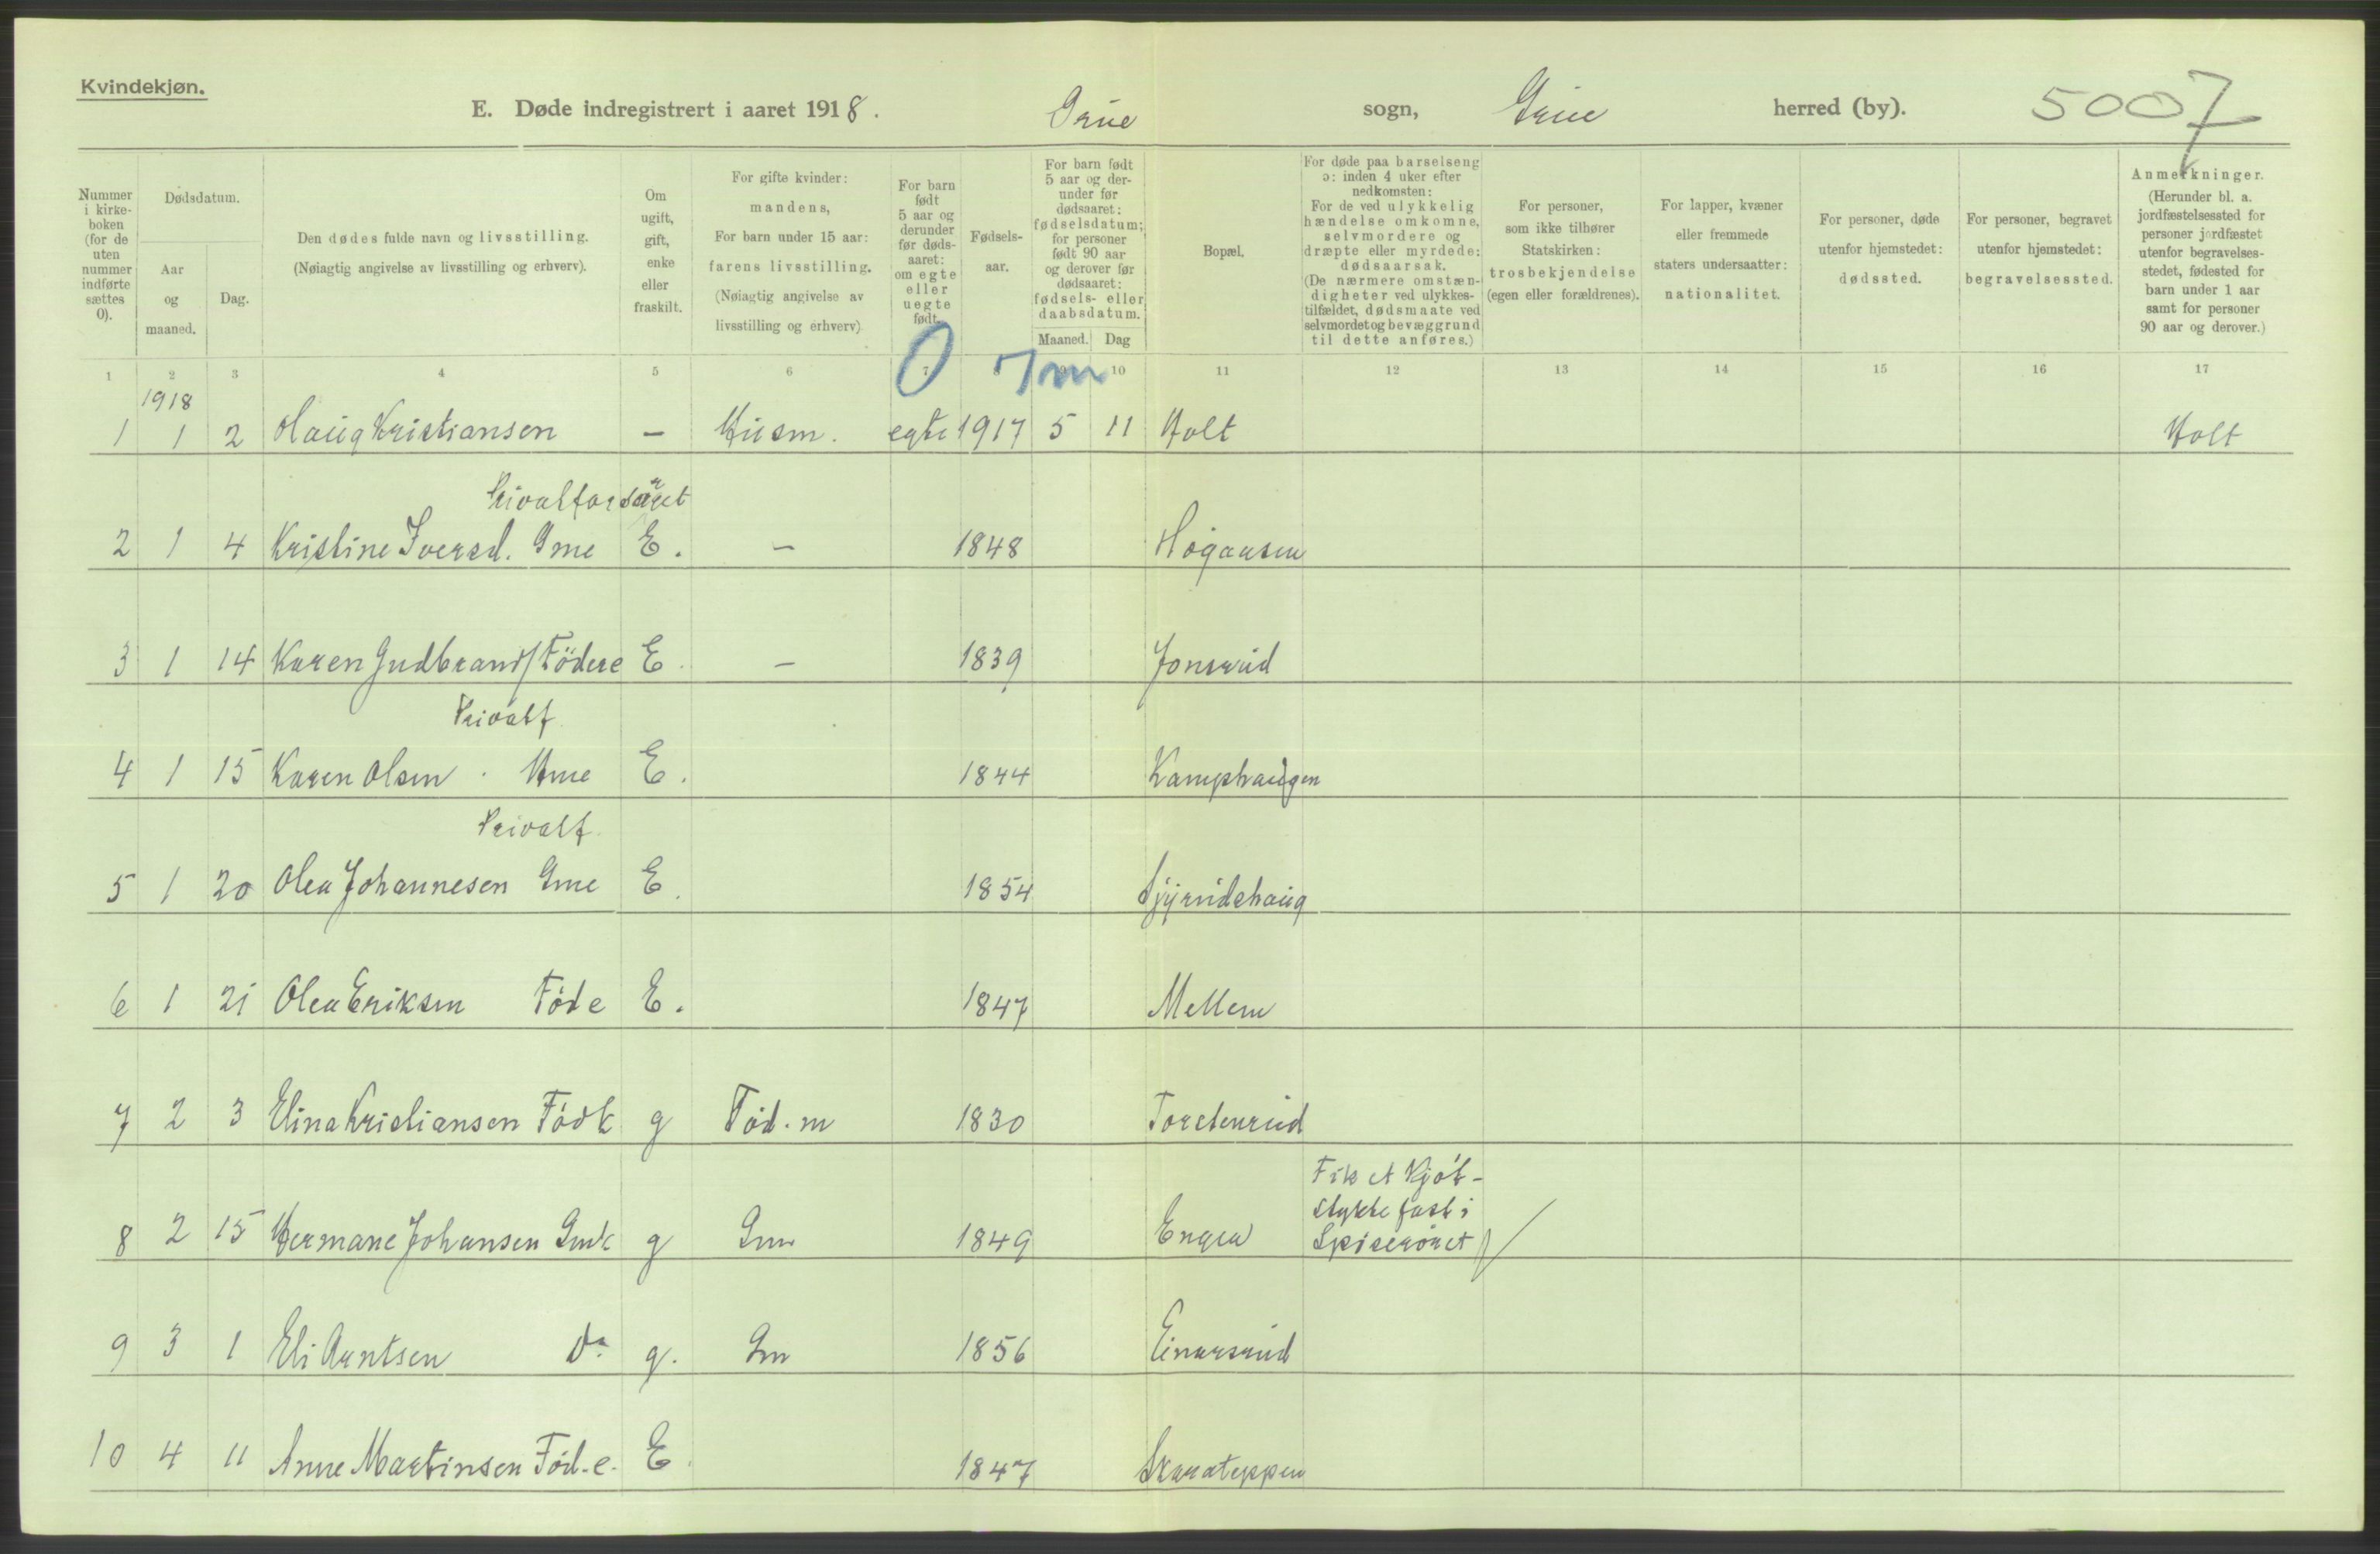 Kvindekjøn.
E. Døde indregistrert i aaret 1918. Grue sogn, Grue herred (by). 5007
Nummer i kirkeboken (for de uten nummer indførte sættes 0).
Dødsdatum.
Aar og maaned.
Dag.
Den dødes fulde navn og livsstilling.
(Nøiagtig angivelse av livsstilling og erhverv).
Om ugift, gift, enke eller fraskilt.
For gifte kvinder: mandens,
For barn under 15 aar: farens livsstilling.
(Nøiagtig angivelse av livsstilling og erhverv)
For barn født 5 aar og derunder før dødsaaret: om egte eller uegte født.
Fødselsaar.
For barn født 5 aar og derunder før dødsaaret: fødselsdatum; for personer født 90 aar og derover før dødsaaret: fødsels- eller daabsdatum.
Maaned. Dag
Bopæl.
For døde paa barselseng ɔ: inden 4 uker efter nedkomsten:
For de ved ulykkelig hændelse omkomne, selvmordere og dræpte eller myrdede: dødsaarsak.
(De nærmere omstændigheter ved ulykkestilfældet, dødsmaate ved selvmordet og bevæggrund til dette anføres.)
For personer, som ikke tilhører Statskirken: trosbekjendelse (egen eller forældrenes).
For lapper, kvæner eller fremmede staters undersaatter: nationalitet.
For personer, døde utenfor hjemstedet: dødssted.
For personer, begravet utenfor hjemstedet: begravelsessted.
Anmerkninger.
(Herunder bl. a. jordfæstelsessted for personer jordfæstet utenfor begravelsesstedet, fødested for barn under 1 aar samt for personer 90 aar og derover.)
1 2 3 4 5 6 7 8 9 10 11 12 13 14 15 16 17
0 7m
1918
1 1 2 Olaug Kristiansen – Husm. egte 1917 5 11 Holt Holt
Privatforsørget
2 1 4 Kristine Iversd. Gme E. – 1848 Høgaasen
3 1 14 Karen Gudbrands Födere E. – 1839 Jonsrud
Privatf.
4 1 15 Karen Olsen Hme E. 1844 Kampehaugen
Privatf.
5 1 20 Olea Johannesen Gme E. 1854
6 1 21 Olea Eriksen Föde E. 1847 Mellem
7 2 3 Elina Kristiansen Födk g Föd. m 1830 Torstenrud
Fik et Kjöt-
stykke fast i
8 2 15 Hermane Johansen Gmk g Gm 1849 Engen Spiserøret
9 3 1 Eli Arntsen Do g. Gm 1856 Einarsrud
10 4 11 Anne Martinsen Föd. e. E. 1847